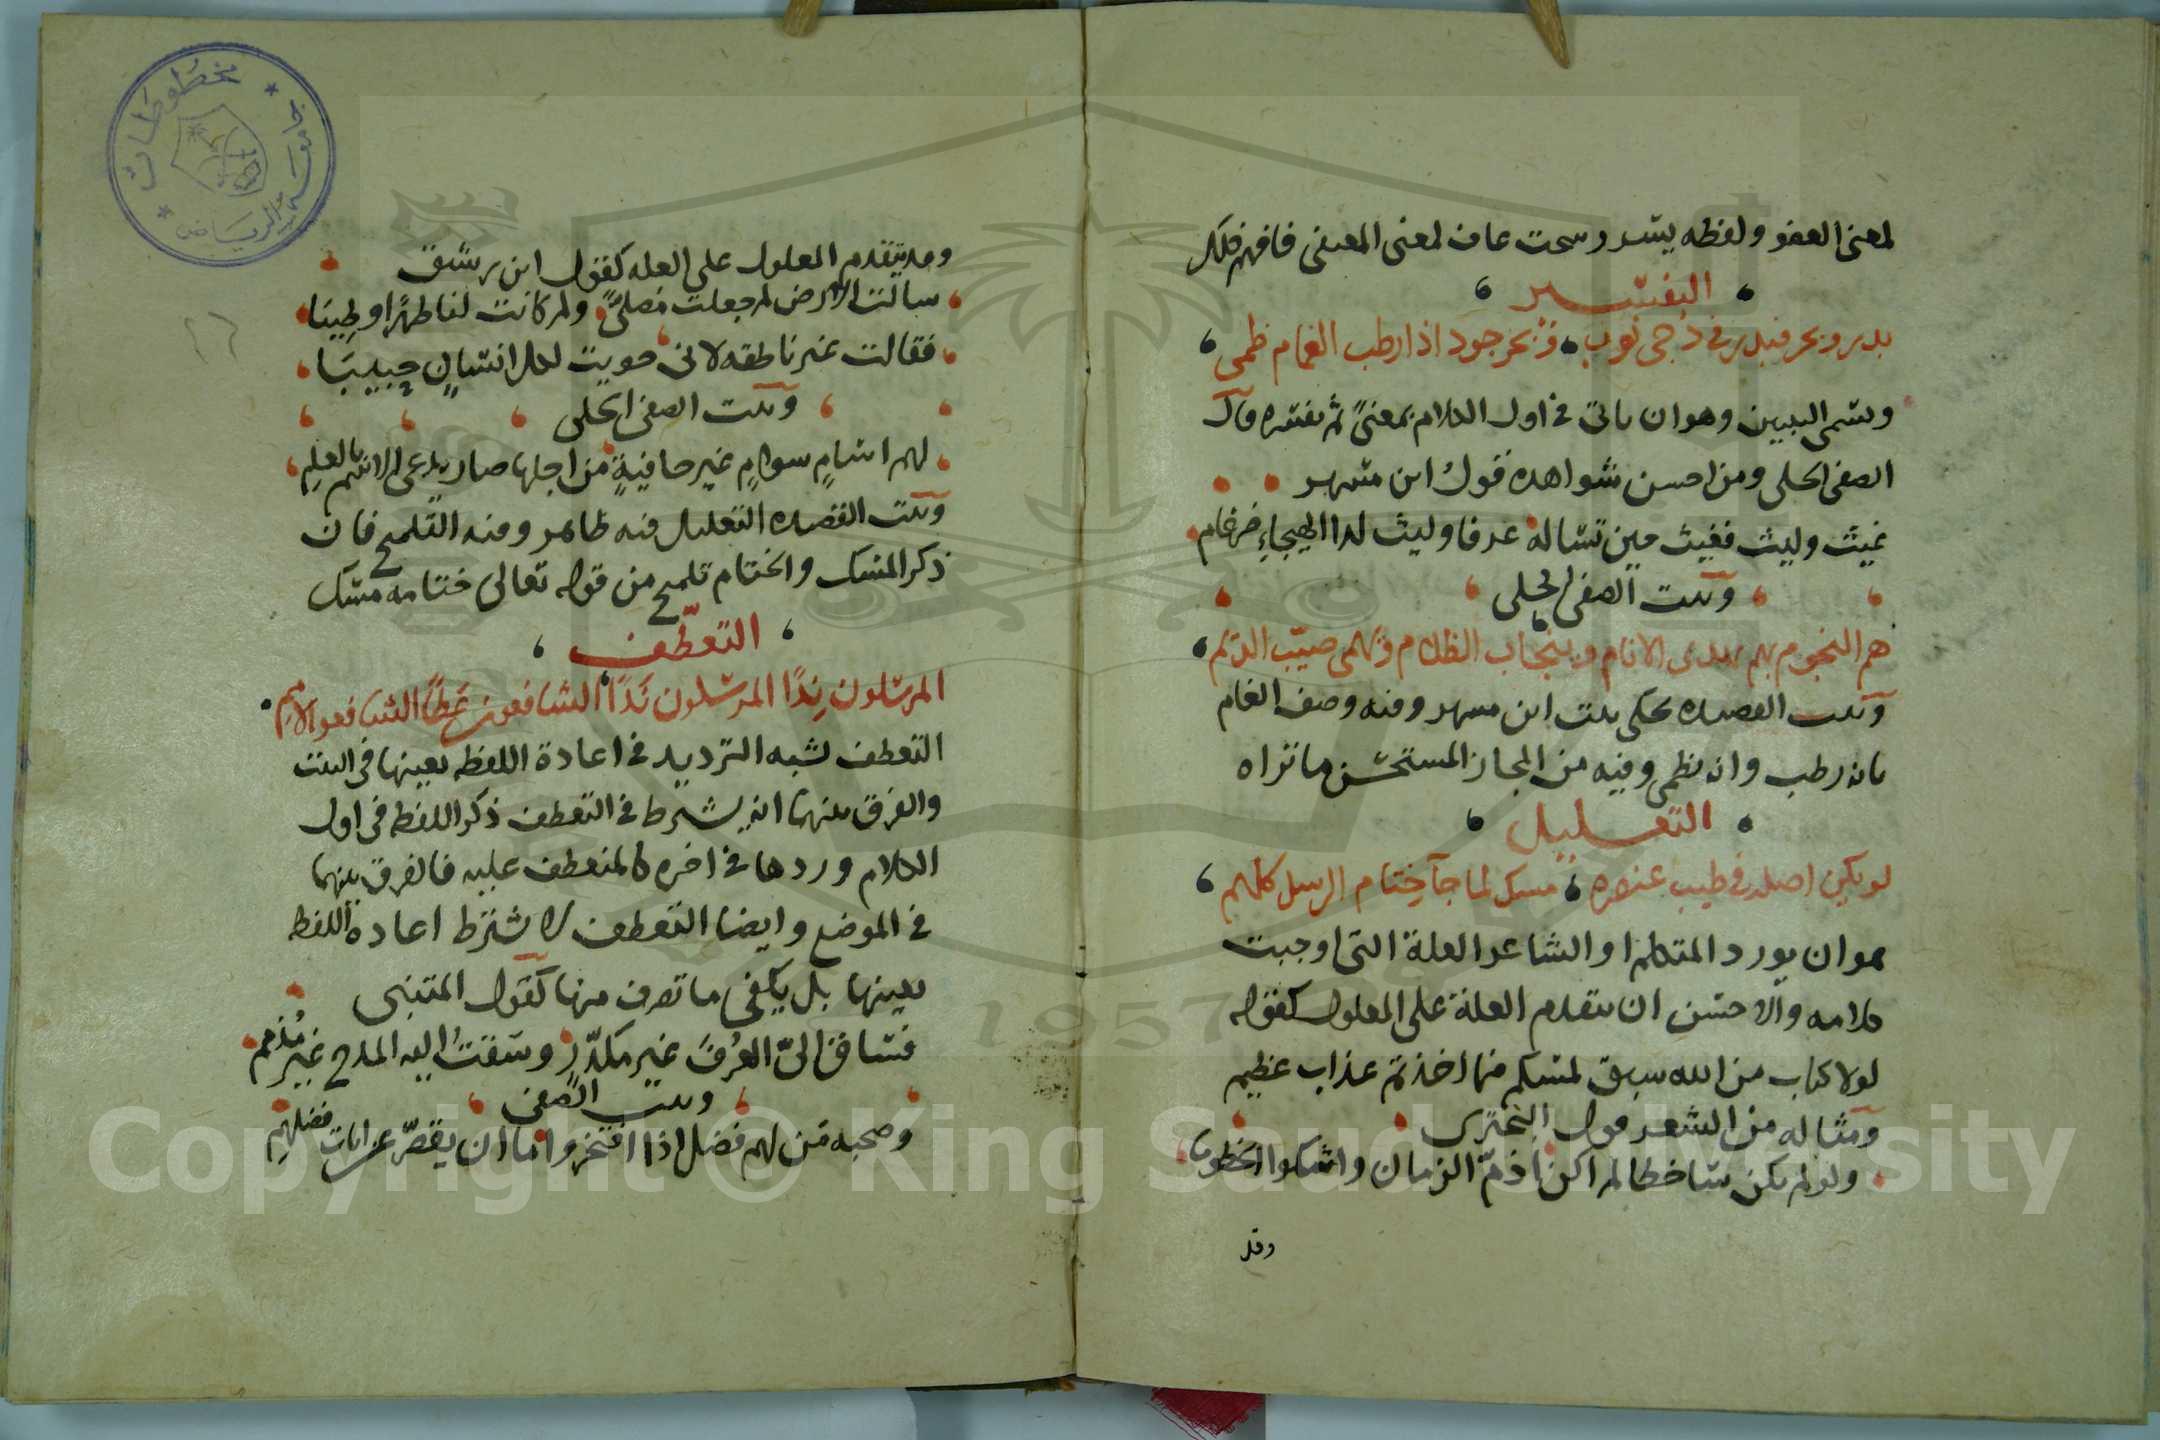 لمعنى العفو ولفظه يشير وسحت عاف لمعنى المعفى فافهم ذلك
التفسير
بدر وبحر فبدر في دجى نوب وبحر جود اذا رطب الغمام ظمى
وسمى التبيين وهو ان ياتى فى اول الكلام بمعنىً ثم يفسره قال
الصفى الحلى ومن احسن شواهده قول ابن مسهر
غيث وليث فغيث حين تساله عرفا وليث لدا الهيجاءِ ضرغام
وبيت الصفى الحلى
هم النجوم بهم يهدى الانام وينجاب الظلام ويهمى صيّب الديم
وبيت القصيده يحكى بيت ابن مسهر وفيه وصف الغمام
بانه رطب وانه يظمى وفيه من المجاز المستحسن ما تراه
التعليل
لو يكن اصله فى طيب عنصره مسك لما جآ ختام الرسل كلهم
هو ان يورد المتكلم او الشاعر العلة التى اوجبت
كلامه والاحسن ان تتقدم العلة على المعلول كقوله
لولا كتاب من الله سبق لمسكم فيما اخذتم عذاب عظيم
ومثاله من الشعر قول البحترى
ولو لم يكن ساخطا لم اكن اذمّ الزمان واشكوا الخطوبا
وقد
وقد يتقدم المعلول على العله كقول ابن رشيق
سالت الارض لم جعلت مصلىً ولم كانت لنا طهرًا وطيبا
فقالت غير ناطقه لانى حويت لكل انسانٍ حبيبَا
وبيت الصفى الحلى
لهم اسامٍ سوامٍ غير خافيةٍ من اجلها صار يدعى الاسم بالعلمِ
وبيت القصيده التعليل فيه ظاهر ومنه التلميح فان
ذكر المسك والختام تلميح من قوله تعالى ختامه مسك
التعطّف
المرسلون نِدًا المرسلون نَدًا الشافعون عَطًا الشافعوا الامم
التعطف يشبه الترديد فى اعادة اللفظه بعينها فى البيت
والفرق بينهما انه يشترط فى التعطف ذكر اللفظه فى اول
الكلام وردها فى اخره كالمنعطف عليه فالفرق بينهما
فى الموضع وايضا التعطف لا يشترط اعادة اللفظ
بعينها بل يكفى ما تصرف منها كقول المتنبى
فساق الىّ العُرفَ غير مكدّرٍ وسقتُ اليه المدح غير مُذمم
وبيت الصفى
وصحبه مَن لهم فضل اذا افتخروا ما ان يقصّر عن ايات فضلهم
مخطوطات
جامعة الرياض
٢٦
Copyright © King Saud University
1957